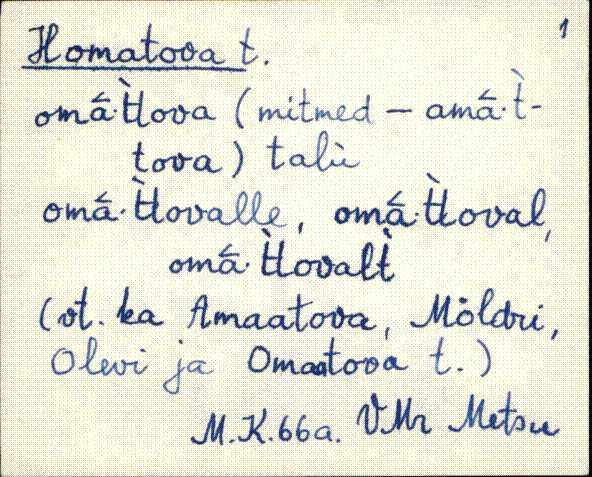 1
Homatova t.
omá·t̀tova (mitmed – amá·t̀-
tova) talù
omá·t̀tovalle, omá·t̀toval,
omá·t̀tovalt̀
(vt. ka Amaatova, Möldri,
Olevi ja Omaatova t.)
M.K.66a. VMr Metsu